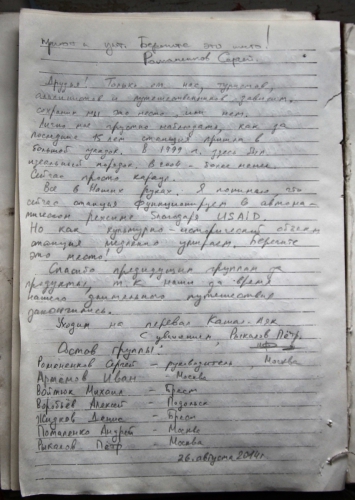 приют и уют. Берегите это место!
Романенков Сергей.
Друзья! Только от нас, туристов,
альпинистов и путешественников зависит,
сохраним мы это место, или нет.
Лично мне грустно наблюдать, как за
последние 15 лет станция пришла в
большой упадок. В 1999 г. здесь был
идеальный порядок. В 2008 - более менее.
Сейчас просто караул.
Все в Наших руках. Я понимаю, что
сейчас станция функционирует в автома-
тическом режиме благодаря USAID.
Но как культурно-исторический объект
станция медленно умирает. Берегите
это место!
Спасибо предидущим группам за
продукты, т.к. наши за время
нашего длительного путешествия
закончились.
Уходим на перевал Кашал-Аяк
С уважением, Рыкалов Пётр.
Состав группы:
Романенков Сергей - руководитель, Москва
Артёмов Иван - Москва
Войтюк Михаил - Брест
Воробьёв Алексей - Подольск
Жидков Денис - Брест
Потапенко Андрей - Москва
Рыкалов Пётр - Москва
26 августа 2014г.